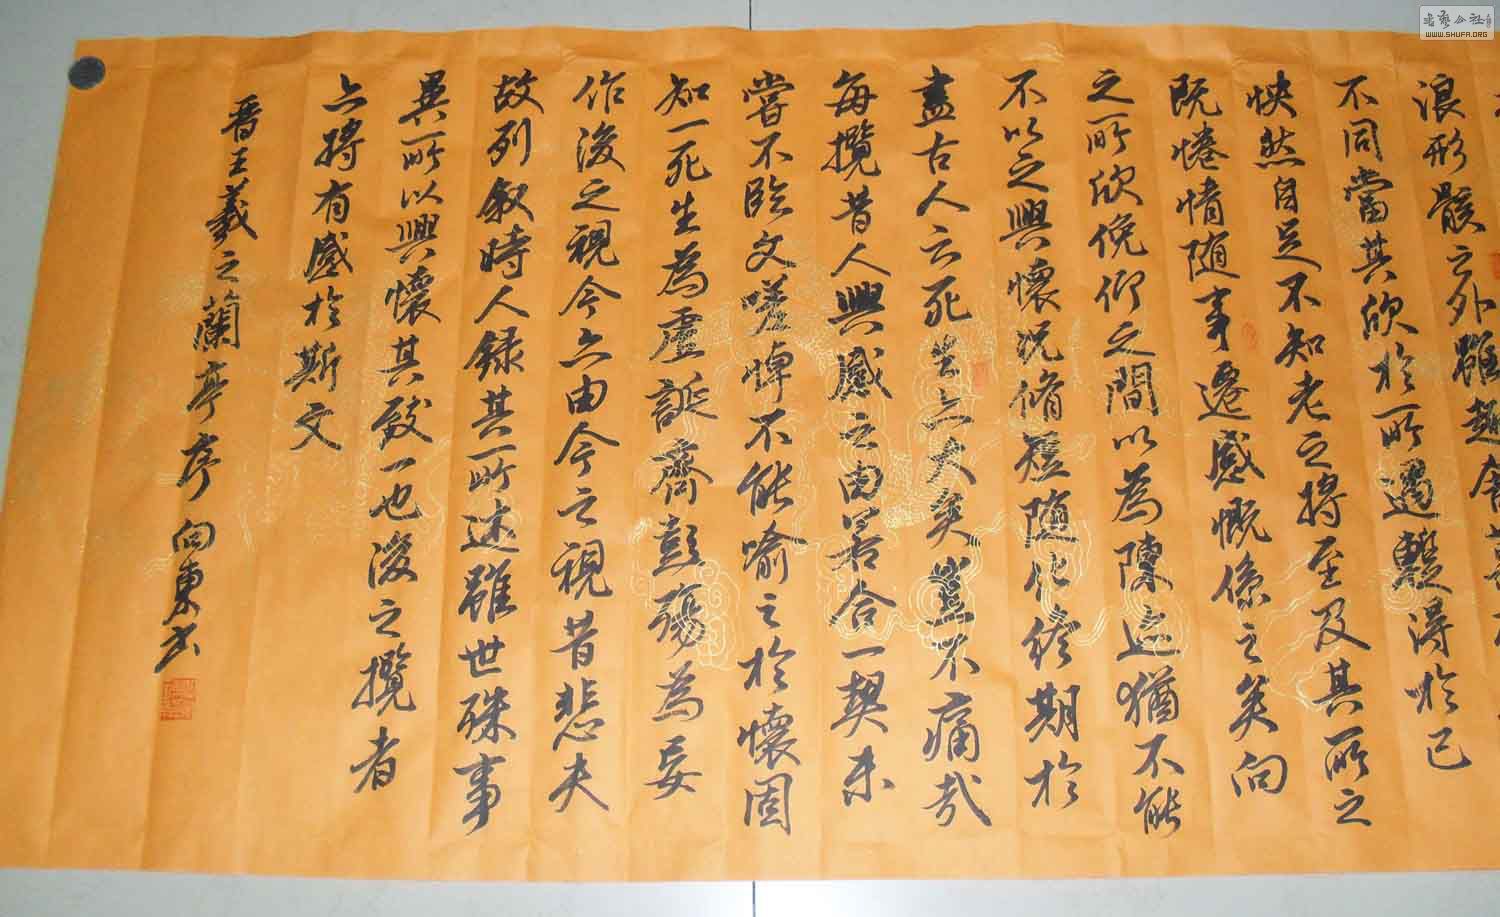 浪形骸之外雖趣舍萬
不同當其欣於所遇暫得於己
怏然自足不知老之將至及其所之
既惓情隨事遷感慨係之矣向
之所欣俛仰之間以為陳迹猶不能
不以之興懷況脩短隨化終期於
盡古人云死生亦大矣豈不痛哉
每攬昔人興感之由若合一契未
嘗不臨文嗟悼不能喻之於懷固
知一死生為虛誕齊彭殤為妄
作後之視今亦由今之視昔悲夫
故列敘時人錄其所述雖世殊事
異所以興懷其致一也後之攬者
亦將有感於斯文
晉王羲之蘭亭序 向東書
WWW.SHUFA.ORG